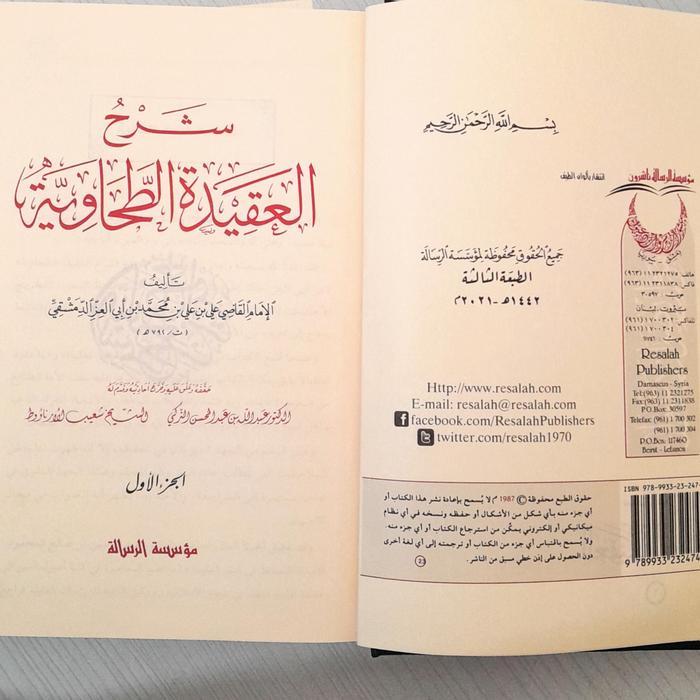 شرح
العقيدة الطحاوية
تأليف
الإمام القاضي علي بن علي بن محمد بن أبي العز الدمشقي
(ت/٧٩٢هـ)
حققه وعلق عليه وخرج أحاديثه وقدم له
الدكتور عبد الله بن عبد المحسن التركي الشيخ شعيب الأرناؤوط
الجزء الأول
مؤسسة الرسالة
بسم الله الرحمن الرحيم
مؤسسة الرسالة ناشرون
جميع الحقوق محفوظة لمؤسسة الرسالة
الطبعة الثالثة
١٤٤٢هـ-٢٠٢١م
دمشق - سوريا
هاتف ١١٢٣٢١٢٧٥ (٩٦٣)
فاكس ١١٢٣١١٨٣٨ (٩٦٣)
ص.ب ٣٠٥٩٧
بيروت - لبنان
تلفاكس ١٧٠٠٣٠٢ (٩٦١)
١٧٠٠٣٠٤ (٩٦١)
Resalah
Publishers
Damascus - Syria
Tel:(963) 11 2321275
Fax:(963) 11 2311838
P.O.Box: 30597
Telefax: (961) 1 700 302
(961) 1 700 304
P.O.Box: 117460
Beirut - Lebanon
Http://www.resalah.com
E-mail: resalah@resalah.com
facebook.com/ResalahPublishers
twitter.com/resalah1970
ISBN 978-9933-23-247
حقوق الطبع محفوظة © 1987 م لا يُسمح بإعادة نشر هذا الكتاب أو
أي جزء منه بأي شكل من الأشكال أو حفظه ونسخه في أي نظام
ميكانيكي أو إلكتروني يمكّن من استرجاع الكتاب أو أي جزء منه.
ولا يُسمح باقتباس أي جزء من الكتاب أو ترجمته إلى أي لغة أخرى
دون الحصول على إذن خطي مسبق من الناشر.
23
9 789933 232474